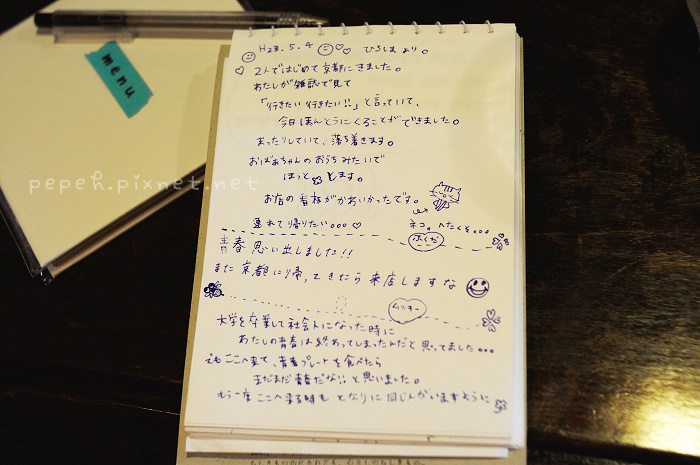 menu
H23.5.4 ひろしまより。
2人ではじめて京都にきました。
わたしが雑誌で見て
「行きたい行きたい!!」と言っていて、
今日ほんとうにくることができました。
まったりしていて、落ち着きます。
おばあちゃんのおうちみたいで
ほっとします。
お店の看板がかわいかったです。
連れて帰りたい…
ネコ。へたくそ…
ふくだ
青春思い出しました!!
また京都に帰ってきたら来店しますな
ムッキー
大学を卒業して社会人になった時に
わたしの青春は終わってしまったんだと思ってました…
でもここへ来て、青春プレートを食べたら
まだまだ青春だな!!と思いました。
もう一度ここへ来る時も となりに同じ人がいますように
pepeh.pixnet.net